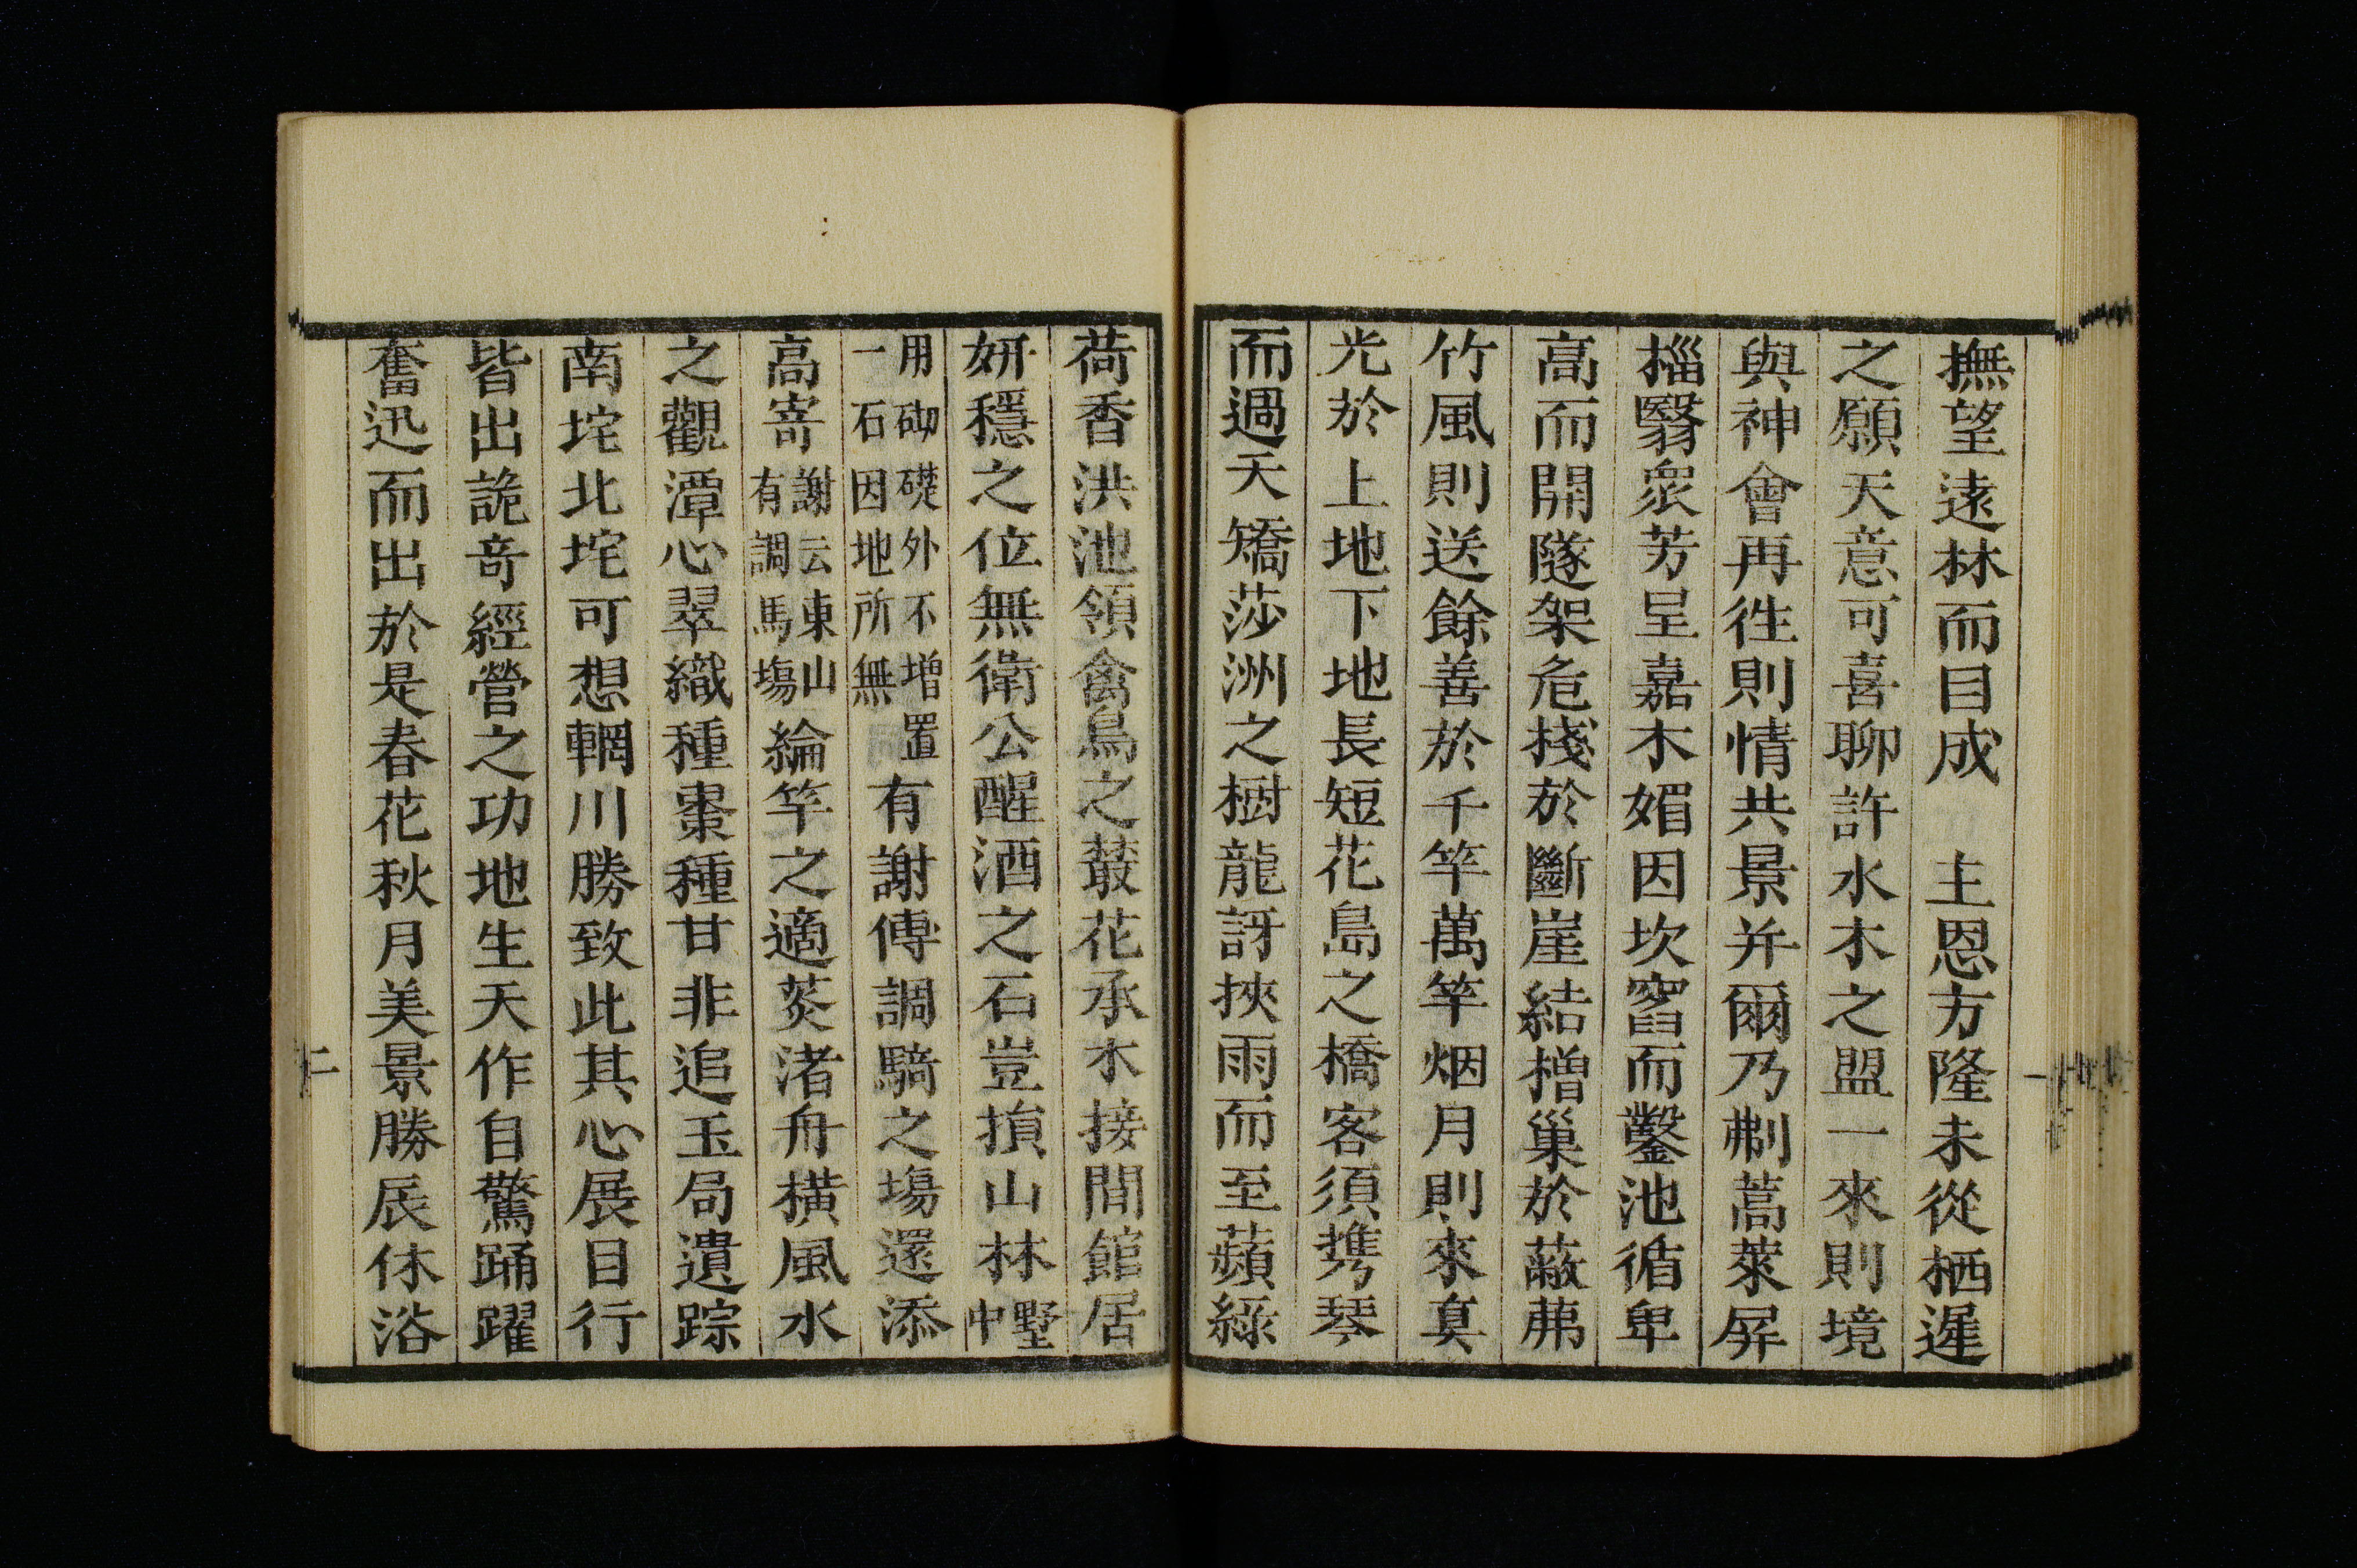 撫望遠林而目成　主恩方隆未從栖遲
之願天意可喜聊許水木之盟一來則境
與神會再徃則情共景并爾乃剃蒿萊屏
椔翳衆芳呈嘉木媚因坎窞而鑿池循卑
高而開隧架危棧於斷崖結橧巢於蔽茀
竹風則送餘善於千竿萬竿烟月則來眞
光於上地下地長短花島之橋客須携琴
而過天矯莎洲之樹龍訝挾雨而至蘋綠
荷香洪池領禽鳥之叢花承木接間館居
妍穩之位無衛公醒酒之石豈損山林中墅
用砌礎外不增置一石因地所無有謝傅調騎之塲還添
高寄謝云東山有調馬塲綸竿之適茭渚舟橫風水
之觀潭心翠織種棗種甘非追玉局遺踪
南垞北垞可想輞川勝致此其心展目行
皆出詭奇經營之功地生天作自驚踊躍
奮迅而出於是春花秋月美景勝辰休浴
一
二